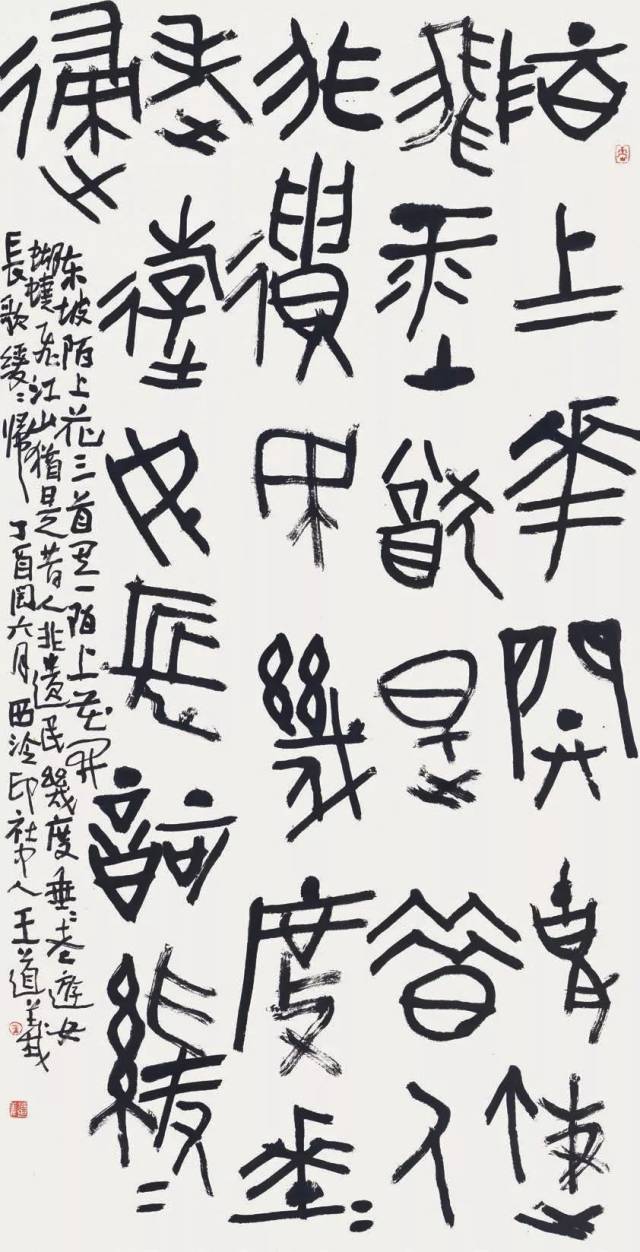 陌上華開蝴蝶
飛江山猶是昔人
非遺民幾度垂〻
老遊女長歌緩〻
歸
东坡陌上花三首之一陌上花開
蝴蝶飛江山猶是昔人非遺民幾度垂〻老遊女
長歌緩〻歸 丁酉閏六月西泠印社中人王道義